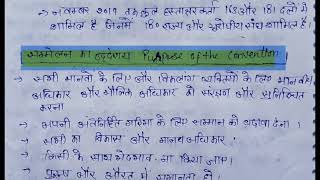 → नवम्बर 2019 तक कुल हस्ताक्षर कर्ता 163 और 181 दलों में
शामिल है जिनमें 180 राज्य और यूरोपीय संघ शामिल हैं।
सम्मेलन का उद्देश्य Purpose of the Convention
→ सभी मानवों के लिए और विकलांग व्यक्तियों के लिए मानव
अधिकार और मौलिक अधिकार को संरक्षण और सुनिश्चित
करना
→ अपनी अंतर्निहित गरिमा के लिए सम्मान को बढ़ावा देना।
→ सभी का विकास और मानव अधिकार।
→ किसी के साथ भेदभाव ना किया जाए।
→ पुरुष और औरत में समानता हो।